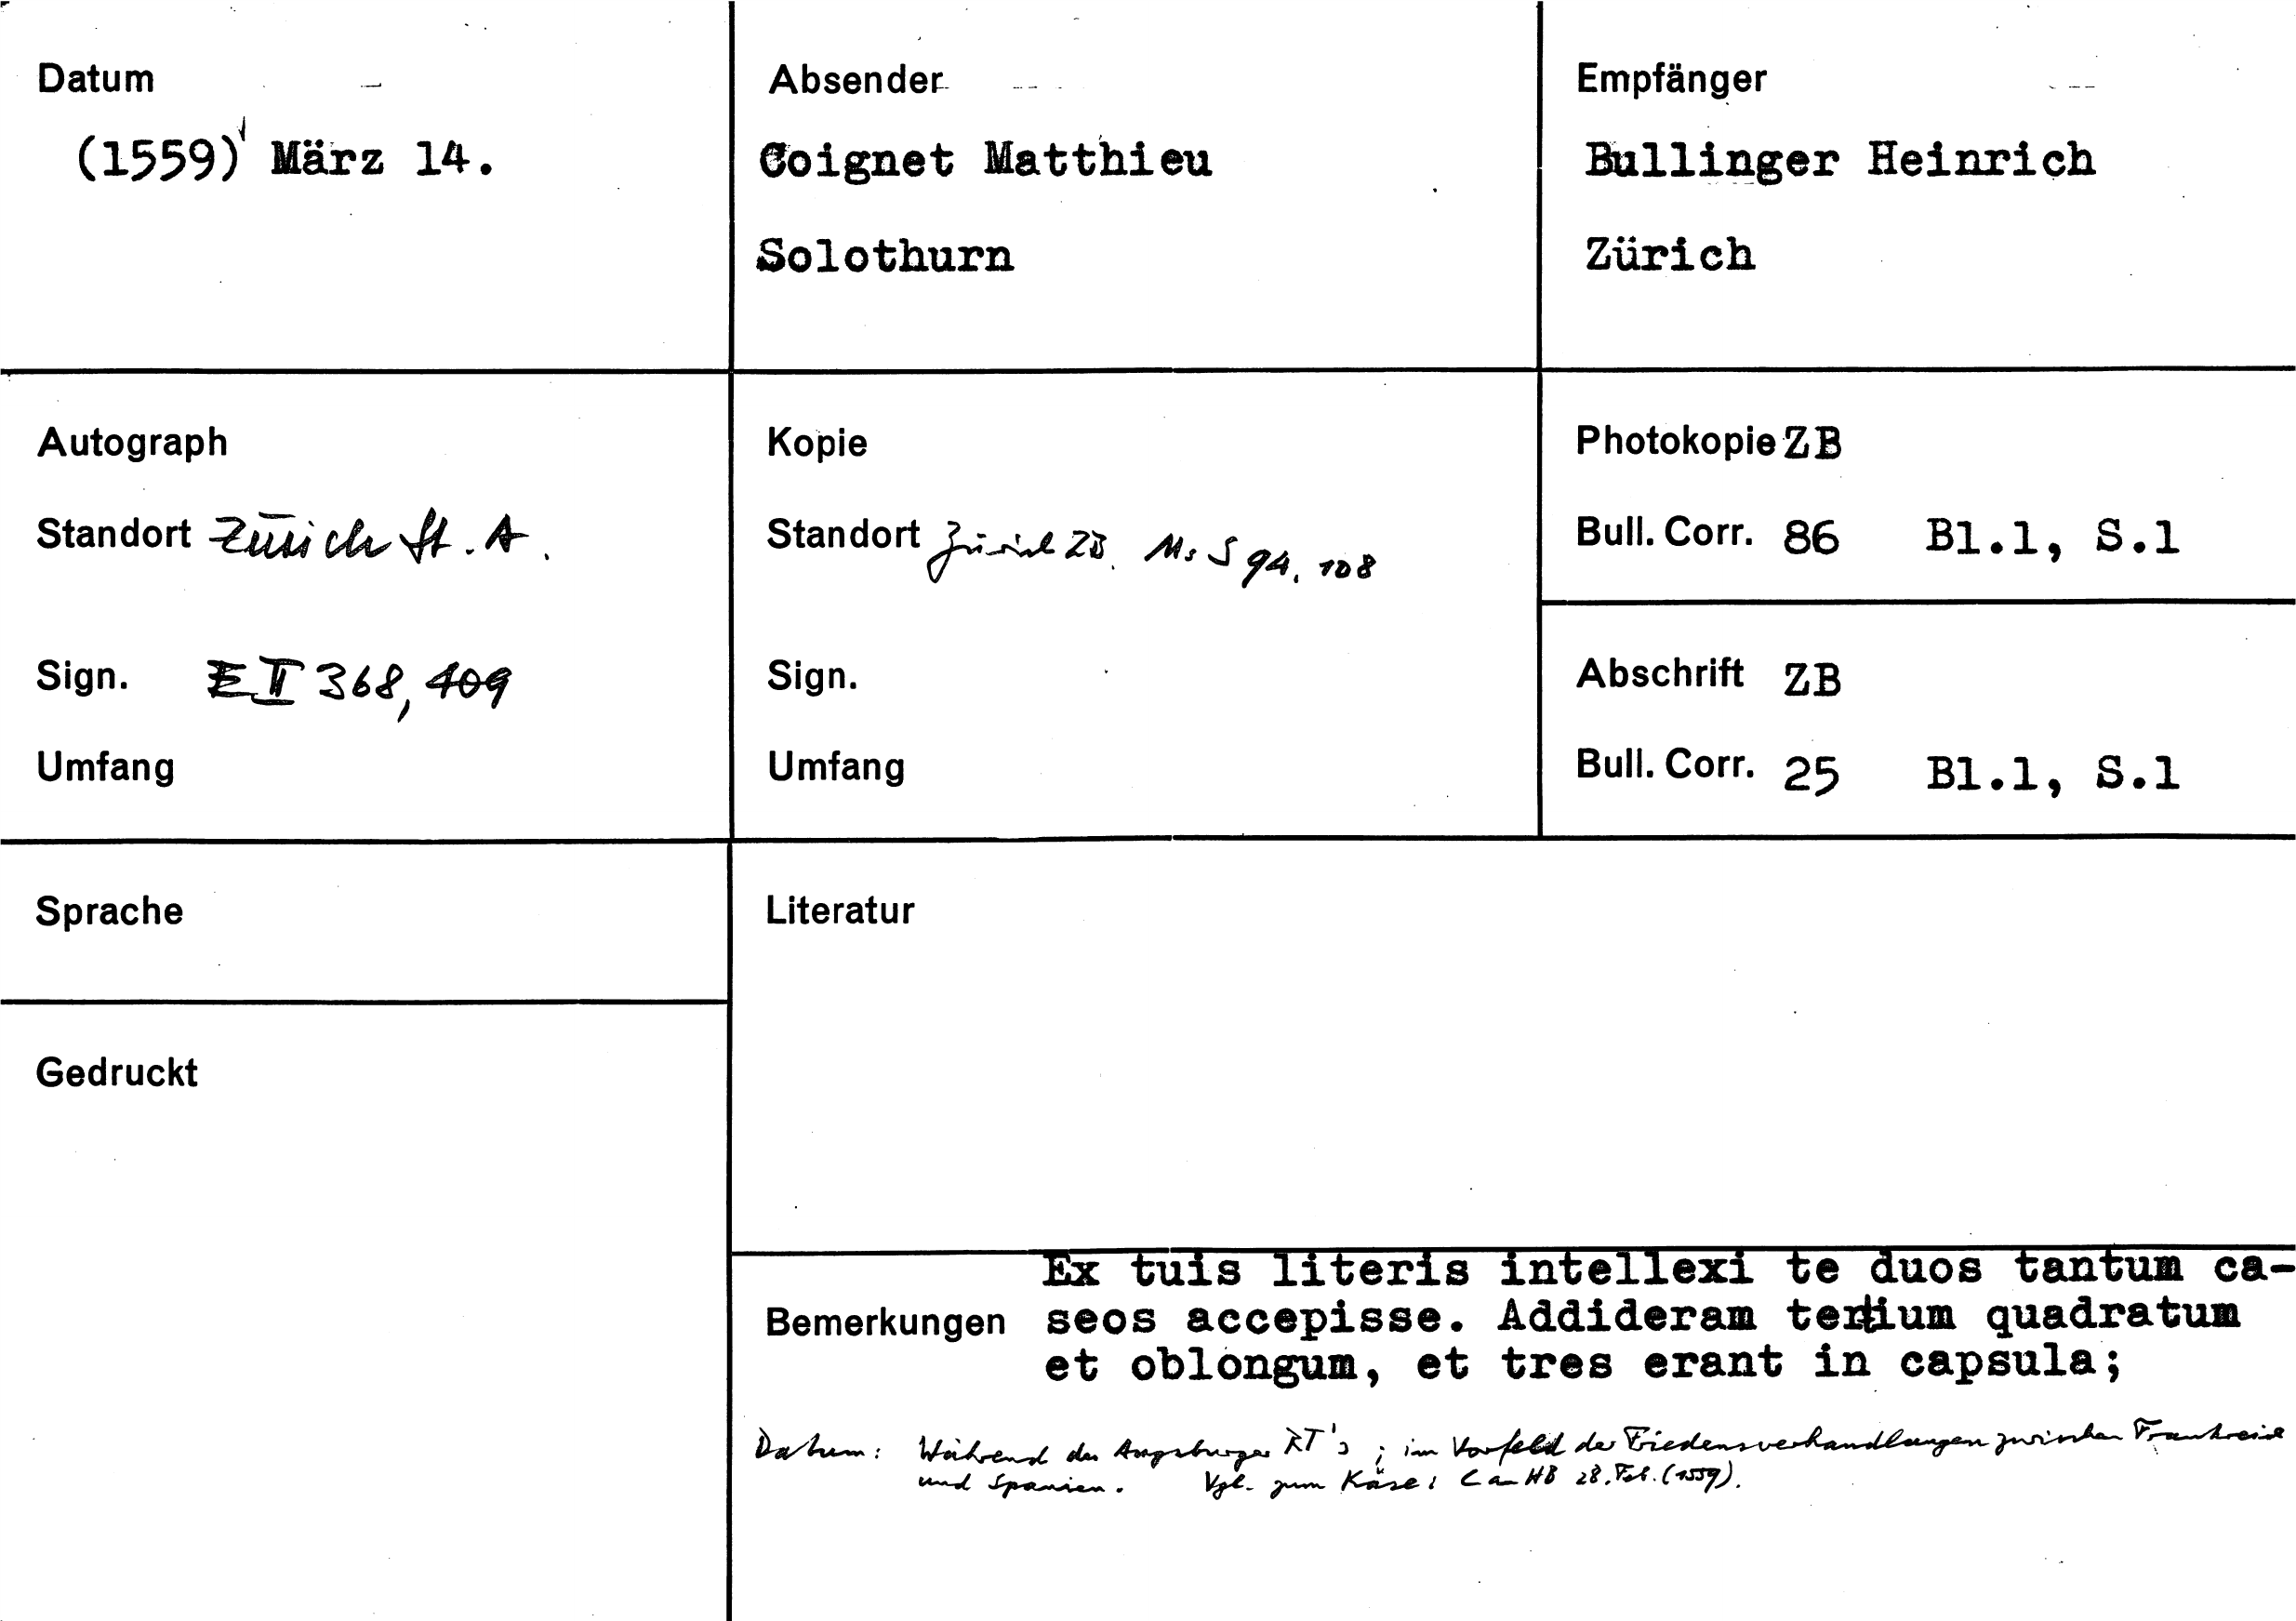 Datum
(1559) März 14.
Absender
Coignet Matthieu
Solothurn
Empfänger
Bullinger Heinrich
Zürich
Autograph
Standort Zürich St. A.
Sign. E II 368, 409
Umfang
Kopie
Standort Zürich ZB. Ms S 94, 108
Sign.
Umfang
Photokopie ZB
Bull. Corr. 86 Bl.1, S.1
Abschrift ZB
Bull. Corr. 25 Bl.1, S.1
Sprache
Gedruckt
Literatur
Bemerkungen
Ex tuis literis intellexi te duos tantum ca-
seos accepisse. Addideram tertium quadratum
et oblongum, et tres erant in capsula;
Datum: Während des Augsburger RT's; im Vorfeld der Friedensverhandlungen zwischen Frankreich
und Spanien. Vgl. zum Käse: C an HB 28. Feb. (1559).